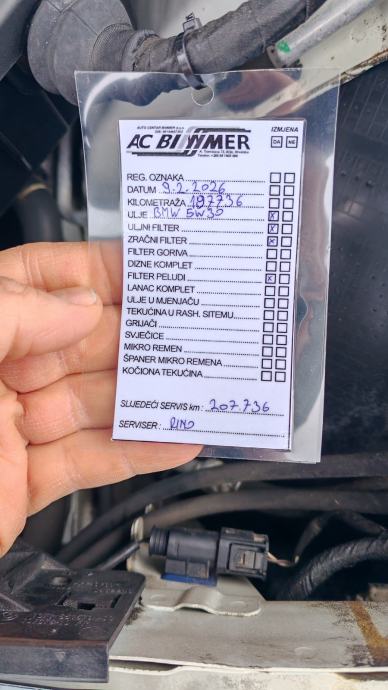 AUTO CENTAR BIMMER d.o.o.
AC BIMMER
IZMJENA
DA NE
REG. OZNAKA
DATUM 9.2.2026
KILOMETRAŽA 197736
ULJE BMW 5W30 X
ULJNI FILTER X
ZRAČNI FILTER X
FILTER GORIVA
DIZNE KOMPLET
FILTER PELUDI X
LANAC KOMPLET
ULJE U MJENJAČU
TEKUĆINA U RASH. SITEMU
GRIJAČI
SVJEĆICE
MIKRO REMEN
ŠPANER MIKRO REMENA
KOČIONA TEKUĆINA
SLIJEDEĆI SERVIS km : 207.736
SERVISER : DINO